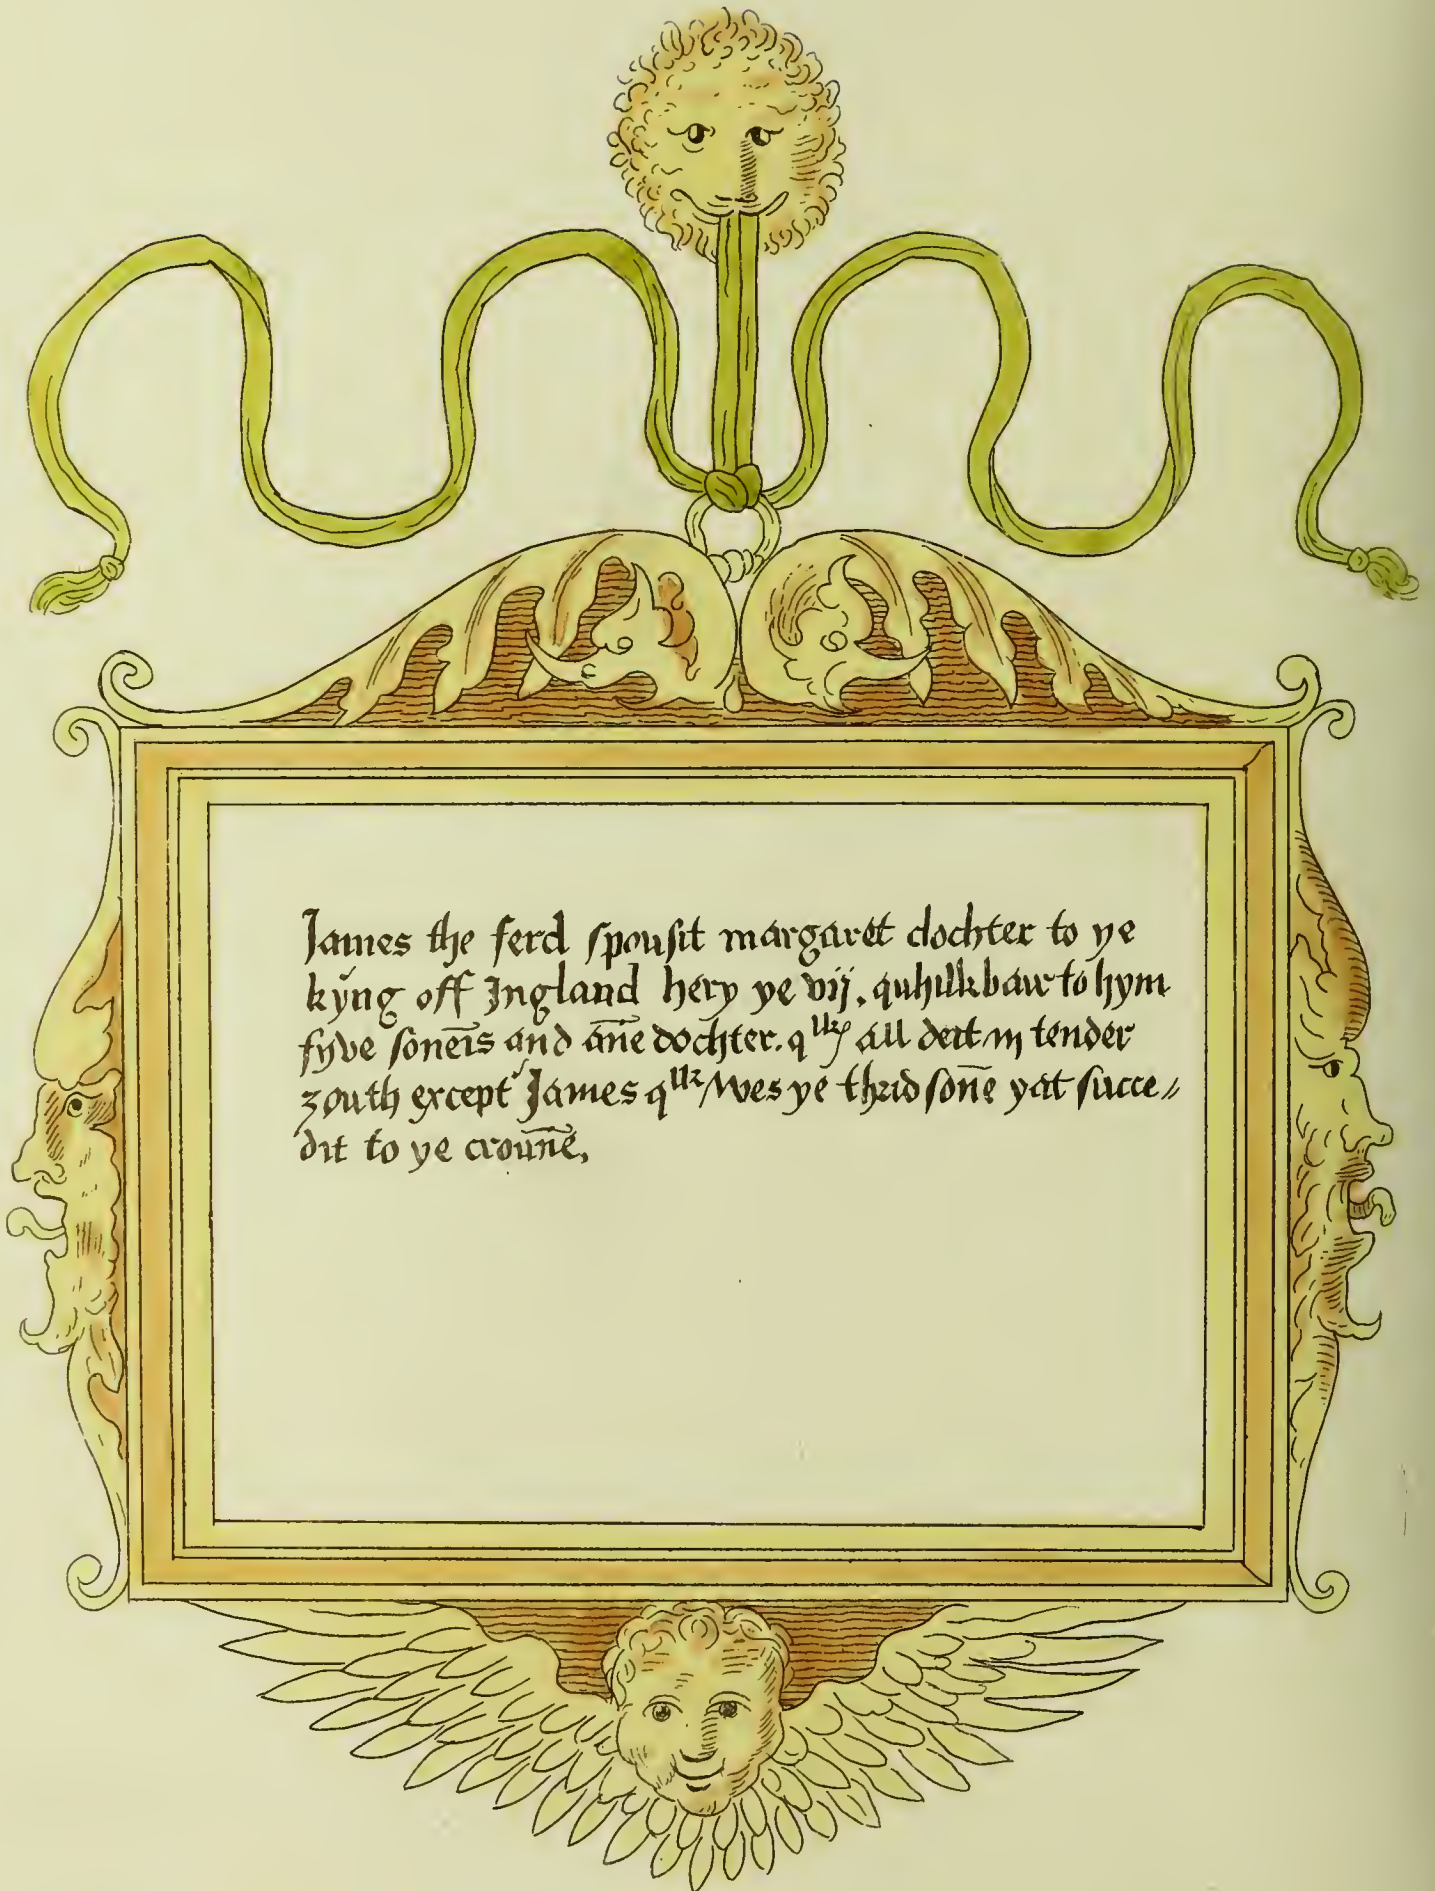 James the ferd spousit margaret dochter to ye
kyng off Ingland hery ye vij, quhilk bair to hym
fyve soneīs and āne dochter. qllkꝭ all deit in tender
ȝouth except James qllk Wes ye thrid sonē yat succe⸗
dit to ye crounē,